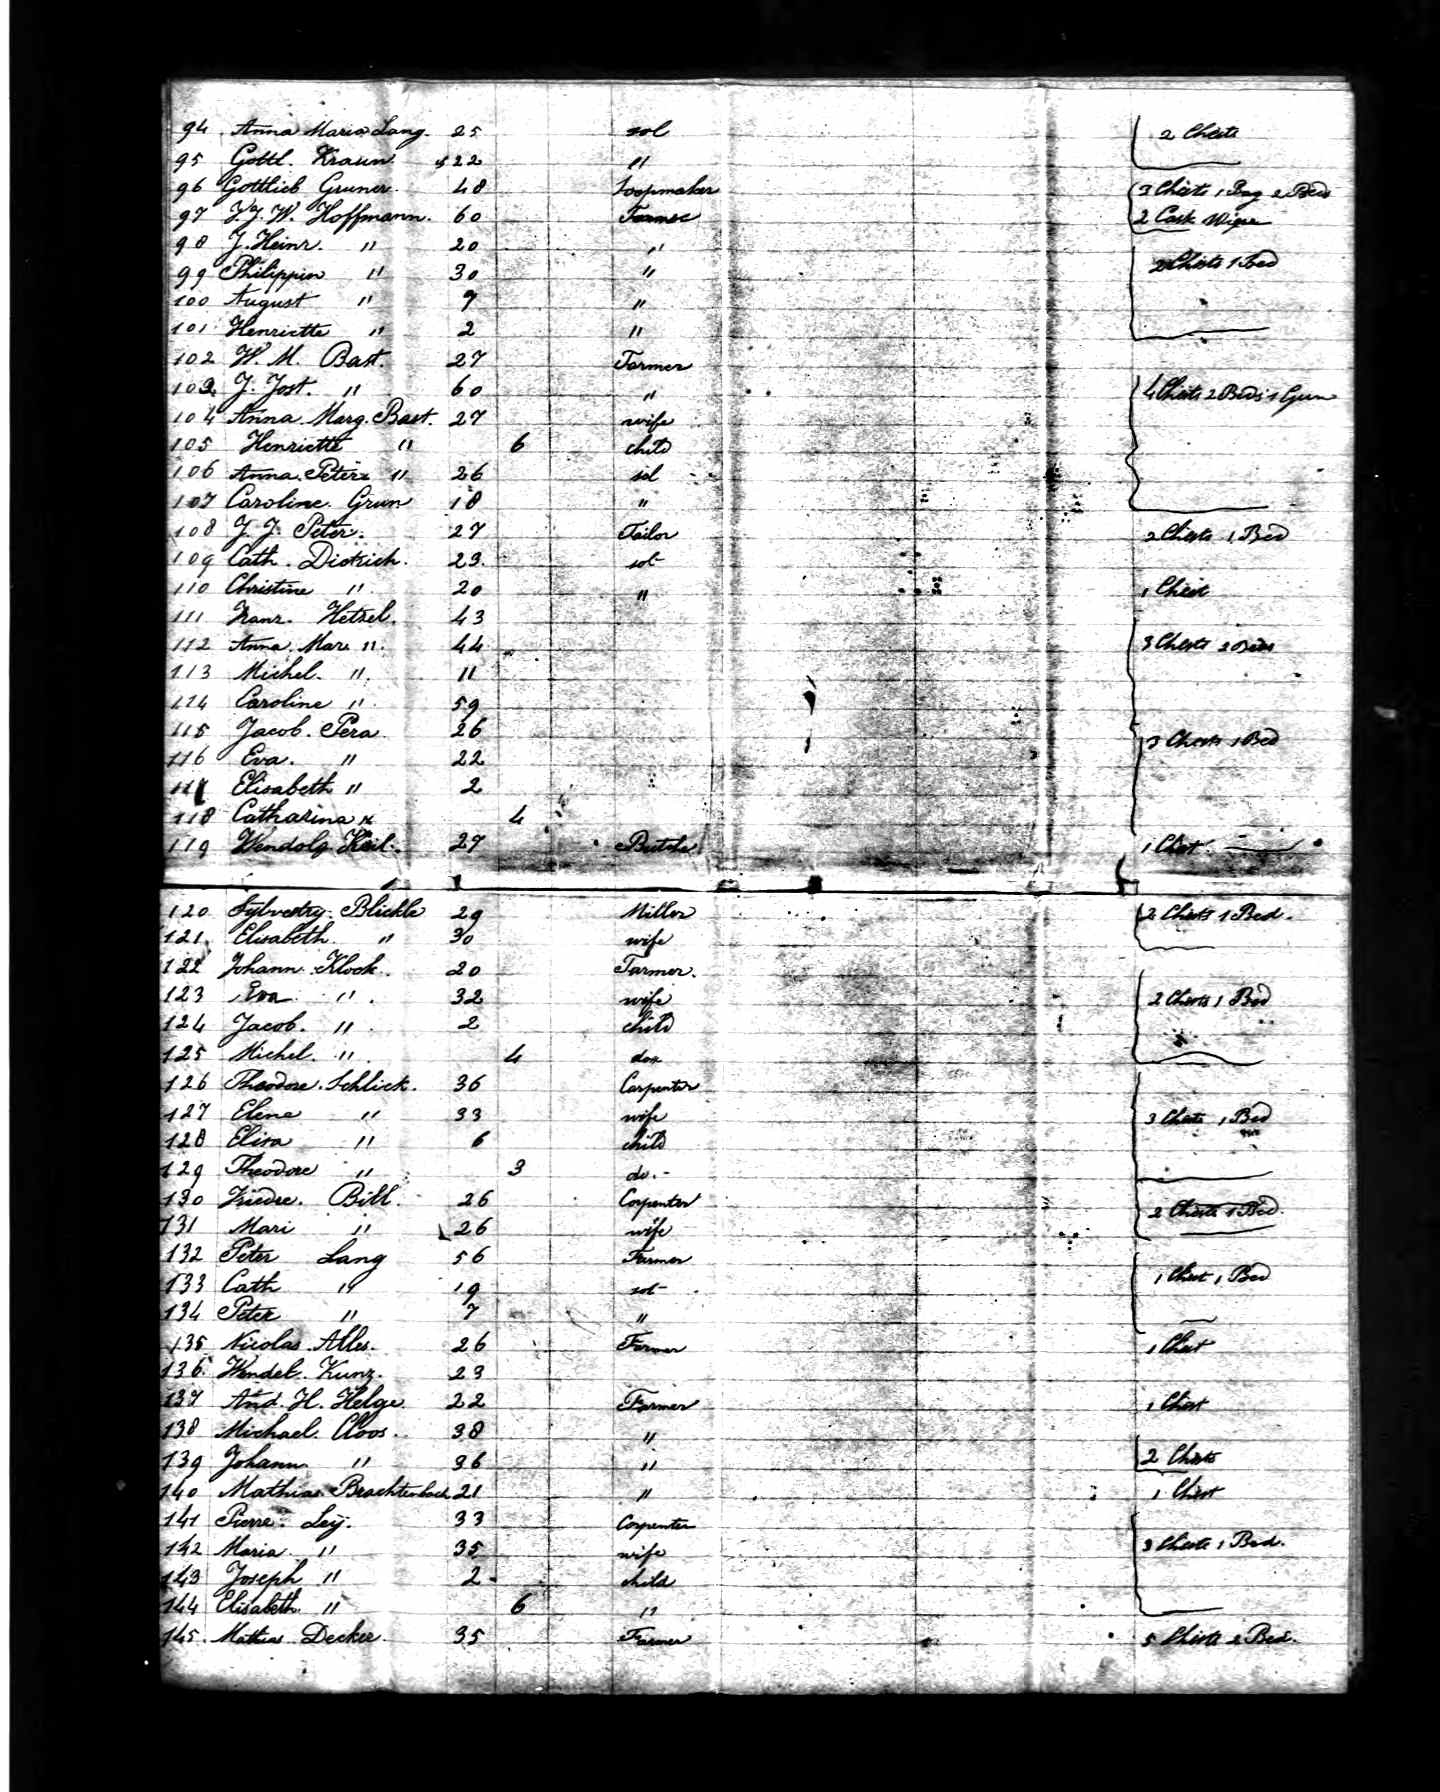 94 Anna Maria Lang. 25 sol 2 Chests
95 Gottl. Kraun 22 "
96 Gottlieb Gruner. 48 Soapmaker 3 Chests 1 Bag 2 Beds
97 J. J. W. Hoffmann. 60 Farmer 2 Cask
98 J. Heinr. " 20 "
99 Philippin " 30 " 2 Chests 1 Bed
100 August " 9 "
101 Henriette " 2 "
102 W. M. Bast. 27 Farmer
103 J. Jost. " 60 " 4 Chests 2 Beds 1 Gun
104 Anna Marg. Bast. 27 wife
105 Henriette " 6 child
106 Anna " 26 sol
107 Caroline Grun 18 "
108 J. J. Peter. 27 Tailor 2 Chests 1 Bed
109 Cath. Dietrich. 23. sol
110 Christine " 20 " 1 Chest
111 Franz. Hetzel. 43
112 Anna. Mar. " 44 3 Chests 2 Beds
113 Michel. " 11
114 Caroline " 59
115 Jacob. Pera 26 3 Chests 1 Bed
116 Eva. " 22
117 Elisabeth " 2
118 Catharina " 4
119 Wendolg Keil. 27 1 Chest.
120 Blickle 29 Miller 2 Chests 1 Bed.
121 Elisabeth " 30 wife
122 Johann Klock. 20 Farmer.
123 Eva " 32 wife 2 Chests 1 Bed
124 Jacob. " 2 child
125 Michel. " 4 do
126 Theodore. Schlick. 36 Carpenter
127 Elene " 33 wife 3 Chests 1 Bed
128 Elisa " 6 child
129 Theodore " 3 do.-
130 Friedre. Bill. 26 Carpenter 2 Chests 1 Bed.
131 Mari " 26 wife
132 Peter Lang 56 Farmer
133 Cath " 19 sol 1 Chest 1 Bed
134 Peter " 7 "
135 Nicolas Alles. 26 Farmer 1 Chest
136 Wendel. Kunz. 23
137 And. H. Helge. 22 Farmer 1 Chest
138 Michael Cloos. 38 "
139 Johann " 36 " 2 Chests
140 Mathias Brachtenbach 21 " 1 Chest
141 Pierre. Leÿ. 33 Carpenter
142 Maria " 35 wife 3 Chests 1 Bed.
143 Joseph " 2 child
144 Elisabeth " 6 "
145. Mathias Decker. 35 Farmer 5 Chests 2 Bed.